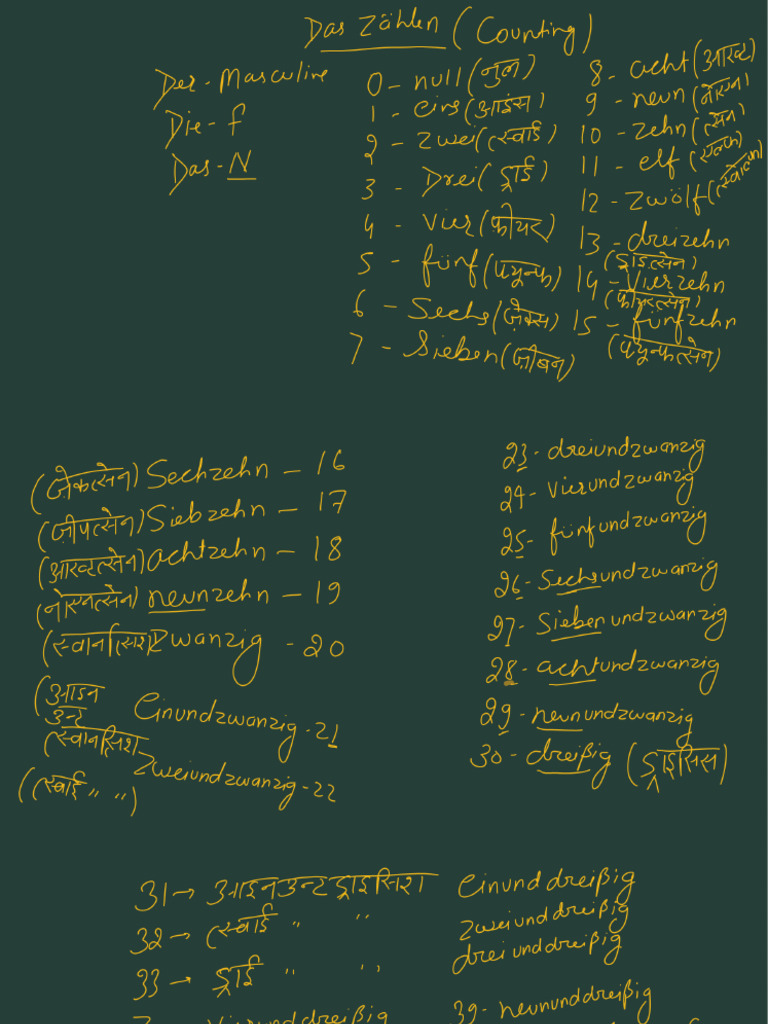 Das Zählen (Counting)
Der - Masculine
Die - f
Das - N
0 - null (नुल)
1 - eins (आइंस)
2 - zwei (त्स्वाई)
3 - Drei (ड्राई)
4 - vier (फ़ीयर)
5 - fünf (फ्यून्फ)
6 - Sechs (ज़ेक्स)
7 - Sieben (ज़ीबन)
8 - acht (आख्ट)
9 - neun (नोएन)
10 - zehn (त्सेन)
11 - elf (एल्फ)
12 - zwölf
13 - dreizehn
(ड्राइत्सेन)
14 - Vierzehn
(फीयरत्सेन)
15 - fünfzehn
(फ्यून्फत्सेन)
(ज़ेकत्सेन) Sechzehn - 16
(ज़ीपत्सेन) Siebzehn - 17
(आख्टत्सेन) achtzehn - 18
(नोएनत्सेन) neunzehn - 19
(स्वानत्सिश) zwanzig - 20
(आइन
उन्ट
त्स्वानत्सिश
Einundzwanzig - 21
(त्स्वाई " ")
Zweiundzwanzig - 22
23 - dreiundzwanzig
24 - Vierundzwanzig
25 - fünfundzwanzig
26 - Sechsundzwanzig
27 - Siebenundzwanzig
28 - achtundzwanzig
29 - neunundzwanzig
30 - dreißig (ड्राइसिस)
31 → आइनउन्टड्राइसिश einunddreißig
32 → त्स्वाई " " zweiunddreißig
33 → ड्राई " " dreiunddreißig
vierunddreißig
39 - neununddreißig